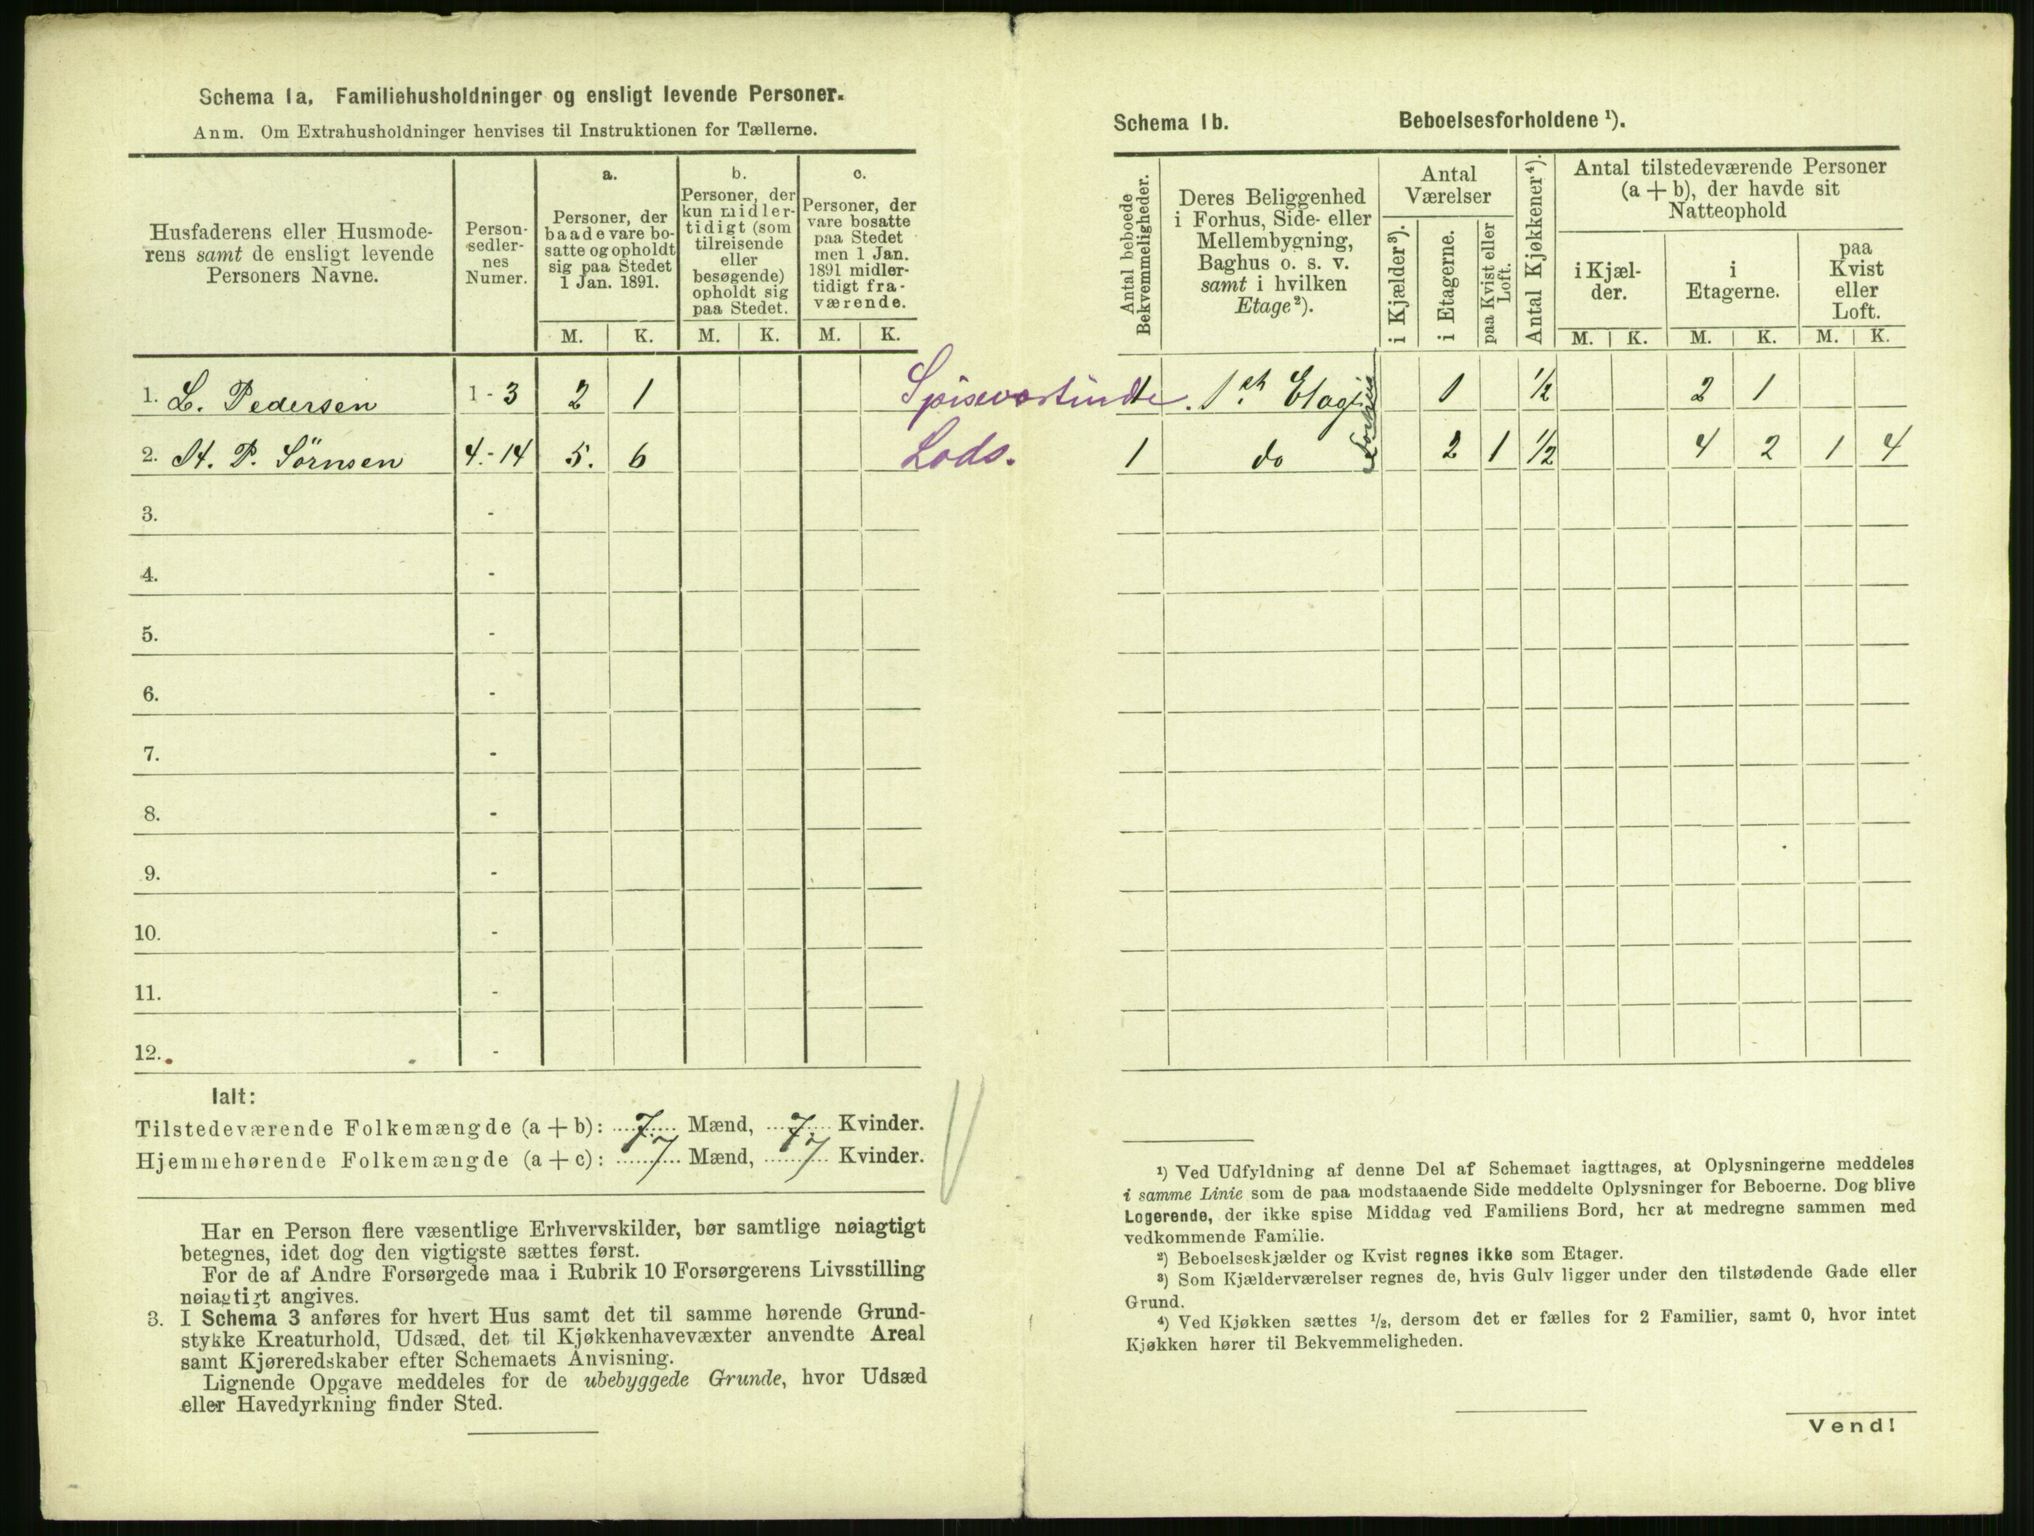 Schema 1a. Familiehusholdninger og ensligt levende Personer.
Anm. Om Extrahusholdninger henvises til Instruktionen for Tællerne.
Husfaderens eller Husmode-
rens samt de ensligt levende
Personers Navne.
Person-
sedler-
nes
Numer.
a.
Personer, der
baade vare bo-
satte og opholdt
sig paa Stedet
1 Jan. 1891.
b.
Personer, der
kun midler-
tidigt (som
tilreisende
eller
besøgende)
opholdt sig
paa Stedet.
c.
Personer, der
vare bosatte
paa Stedet
men 1 Jan.
1891 midler-
tidigt fra-
værende.
M. K. M. K. M. K.
1. L. Pedersen 1 - 3 2 1 Spisevertinde
2. H. P. Sörnsen 4.-14 5. 6 Lods.
3. -
4. -
5. -
6. -
7. -
8. -
9. -
10. -
11. -
12. -
Ialt:
Tilstedeværende Folkemængde (a + b): 7 Mænd, 7 Kvinder.
Hjemmehørende Folkemængde (a + c): 7 Mænd, 7 Kvinder.
Har en Person flere væsentlige Erhvervskilder, bør samtlige nøiagtigt
betegnes, idet dog den vigtigste sættes først.
For de af Andre Forsørgede maa i Rubrik 10 Forsørgerens Livsstilling
nøiagtigt angives.
3. I Schema 3 anføres for hvert Hus samt det til samme hørende Grund-
stykke Kreaturhold, Udsæd, det til Kjøkkenhavevæxter anvendte Areal
samt Kjøreredskaber efter Schemaets Anvisning.
Lignende Opgave meddeles for de ubebyggede Grunde, hvor Udsæd
eller Havedyrkning finder Sted.
Schema 1b. Beboelsesforholdene ¹).
Antal beboede
Bekvemmeligheder.
Deres Beliggenhed
i Forhus, Side- eller
Mellembygning,
Baghus o. s. v.
samt i hvilken
Etage²).
Antal
Værelser
i Kjælder³).
i Etagerne.
paa Kvist eller
Loft.
Antal Kjøkkener⁴).
Antal tilstedeværende Personer
(a + b), der havde sit
Natteophold
i Kjæl-
der.
i
Etagerne.
paa
Kvist
eller
Loft.
M. K. M. K. M. K.
1 1st Etage 1 ½ 2 1
1 do 2 1 ½ 4 2 1 4
Forhus
¹) Ved Udfyldning af denne Del af Schemaet iagttages, at Oplysningerne meddeles
i samme Linie som de paa modstaaende Side meddelte Oplysninger for Beboerne. Dog blive
Logerende, der ikke spise Middag ved Familiens Bord, her at medregne sammen med
vedkommende Familie.
²) Beboelseskjælder og Kvist regnes ikke som Etager.
³) Som Kjælderværelser regnes de, hvis Gulv ligger under den tilstødende Gade eller
Grund.
⁴) Ved Kjøkken sættes ½, dersom det er fælles for 2 Familier, samt 0, hvor intet
Kjøkken hører til Bekvemmeligheden.
Vend!